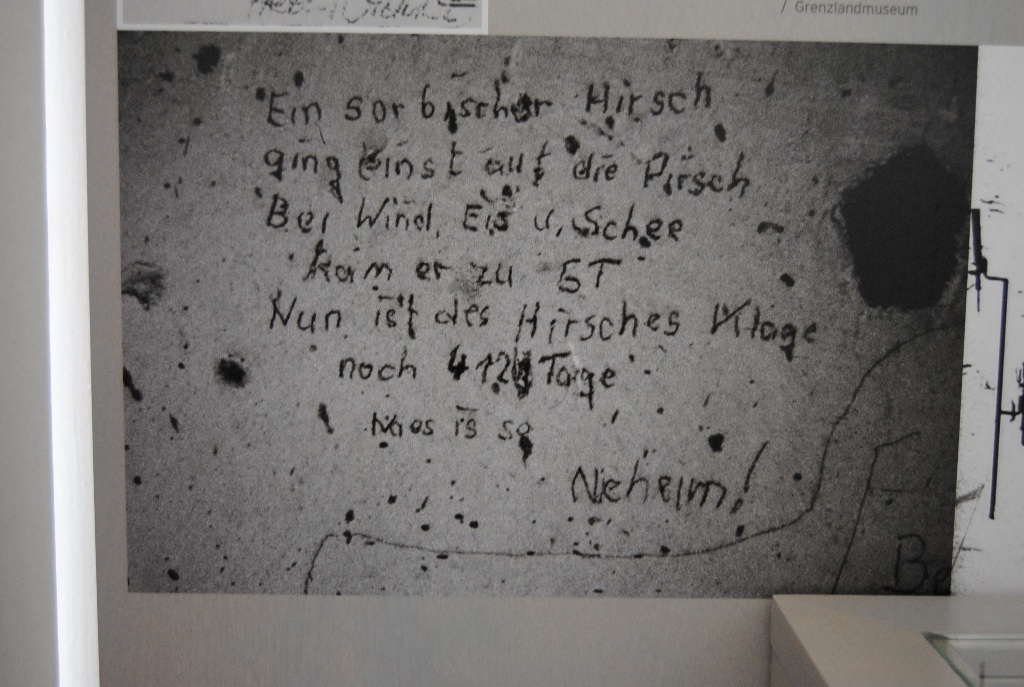 / Grenzlandmuseum
Ein sorbischer Hirsch
ging einst auf die Pirsch
Bei Wind, Eis u. Schee
kam er zu GT
Nun ist des Hirsches Klage
noch 412 Tage
is so
Nieheim!
Be